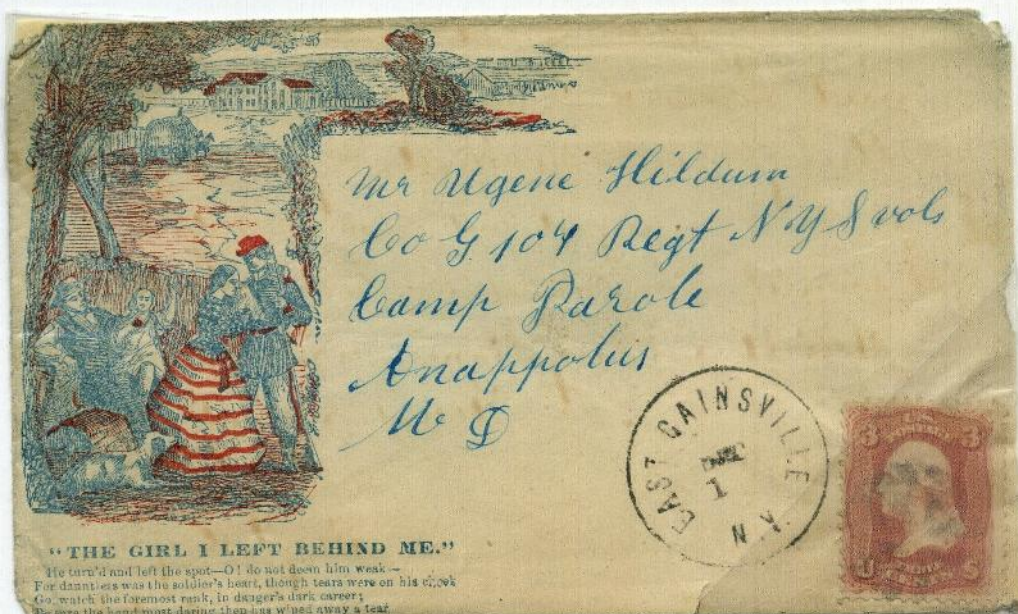 Mr Ugene Hildum
Co G 104 Regt N Y S vols
Camp Parole
Anappolus
M D
EAST GAINSVILLE
DEC
1
N.Y.
3 3
U S
"THE GIRL I LEFT BEHIND ME."
He turn'd and left the spot—O! do not deem him weak—
For dauntless was the soldier's heart, though tears were on his cheek
Go, watch the foremost rank, in danger's dark career;
Be sure the hand most daring then has wiped away a tear